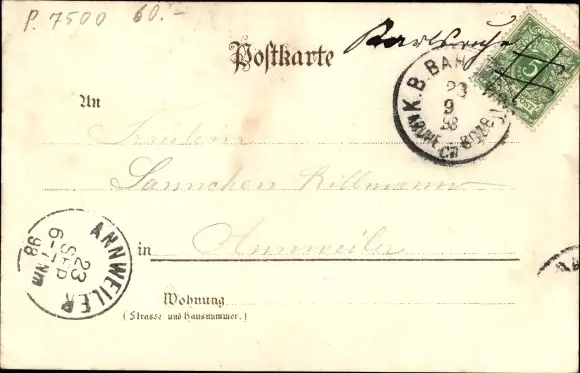 P. 7500 60.-
Postkarte
Karlsruhe
K.B. BAH
23
9
98
5
An
Fräulein
Sannchen Killmann
in Annweiler
ANNWEILER
23
SEP
6-7 Nm
98
Wohnung
(Strasse und Hausnummer.)